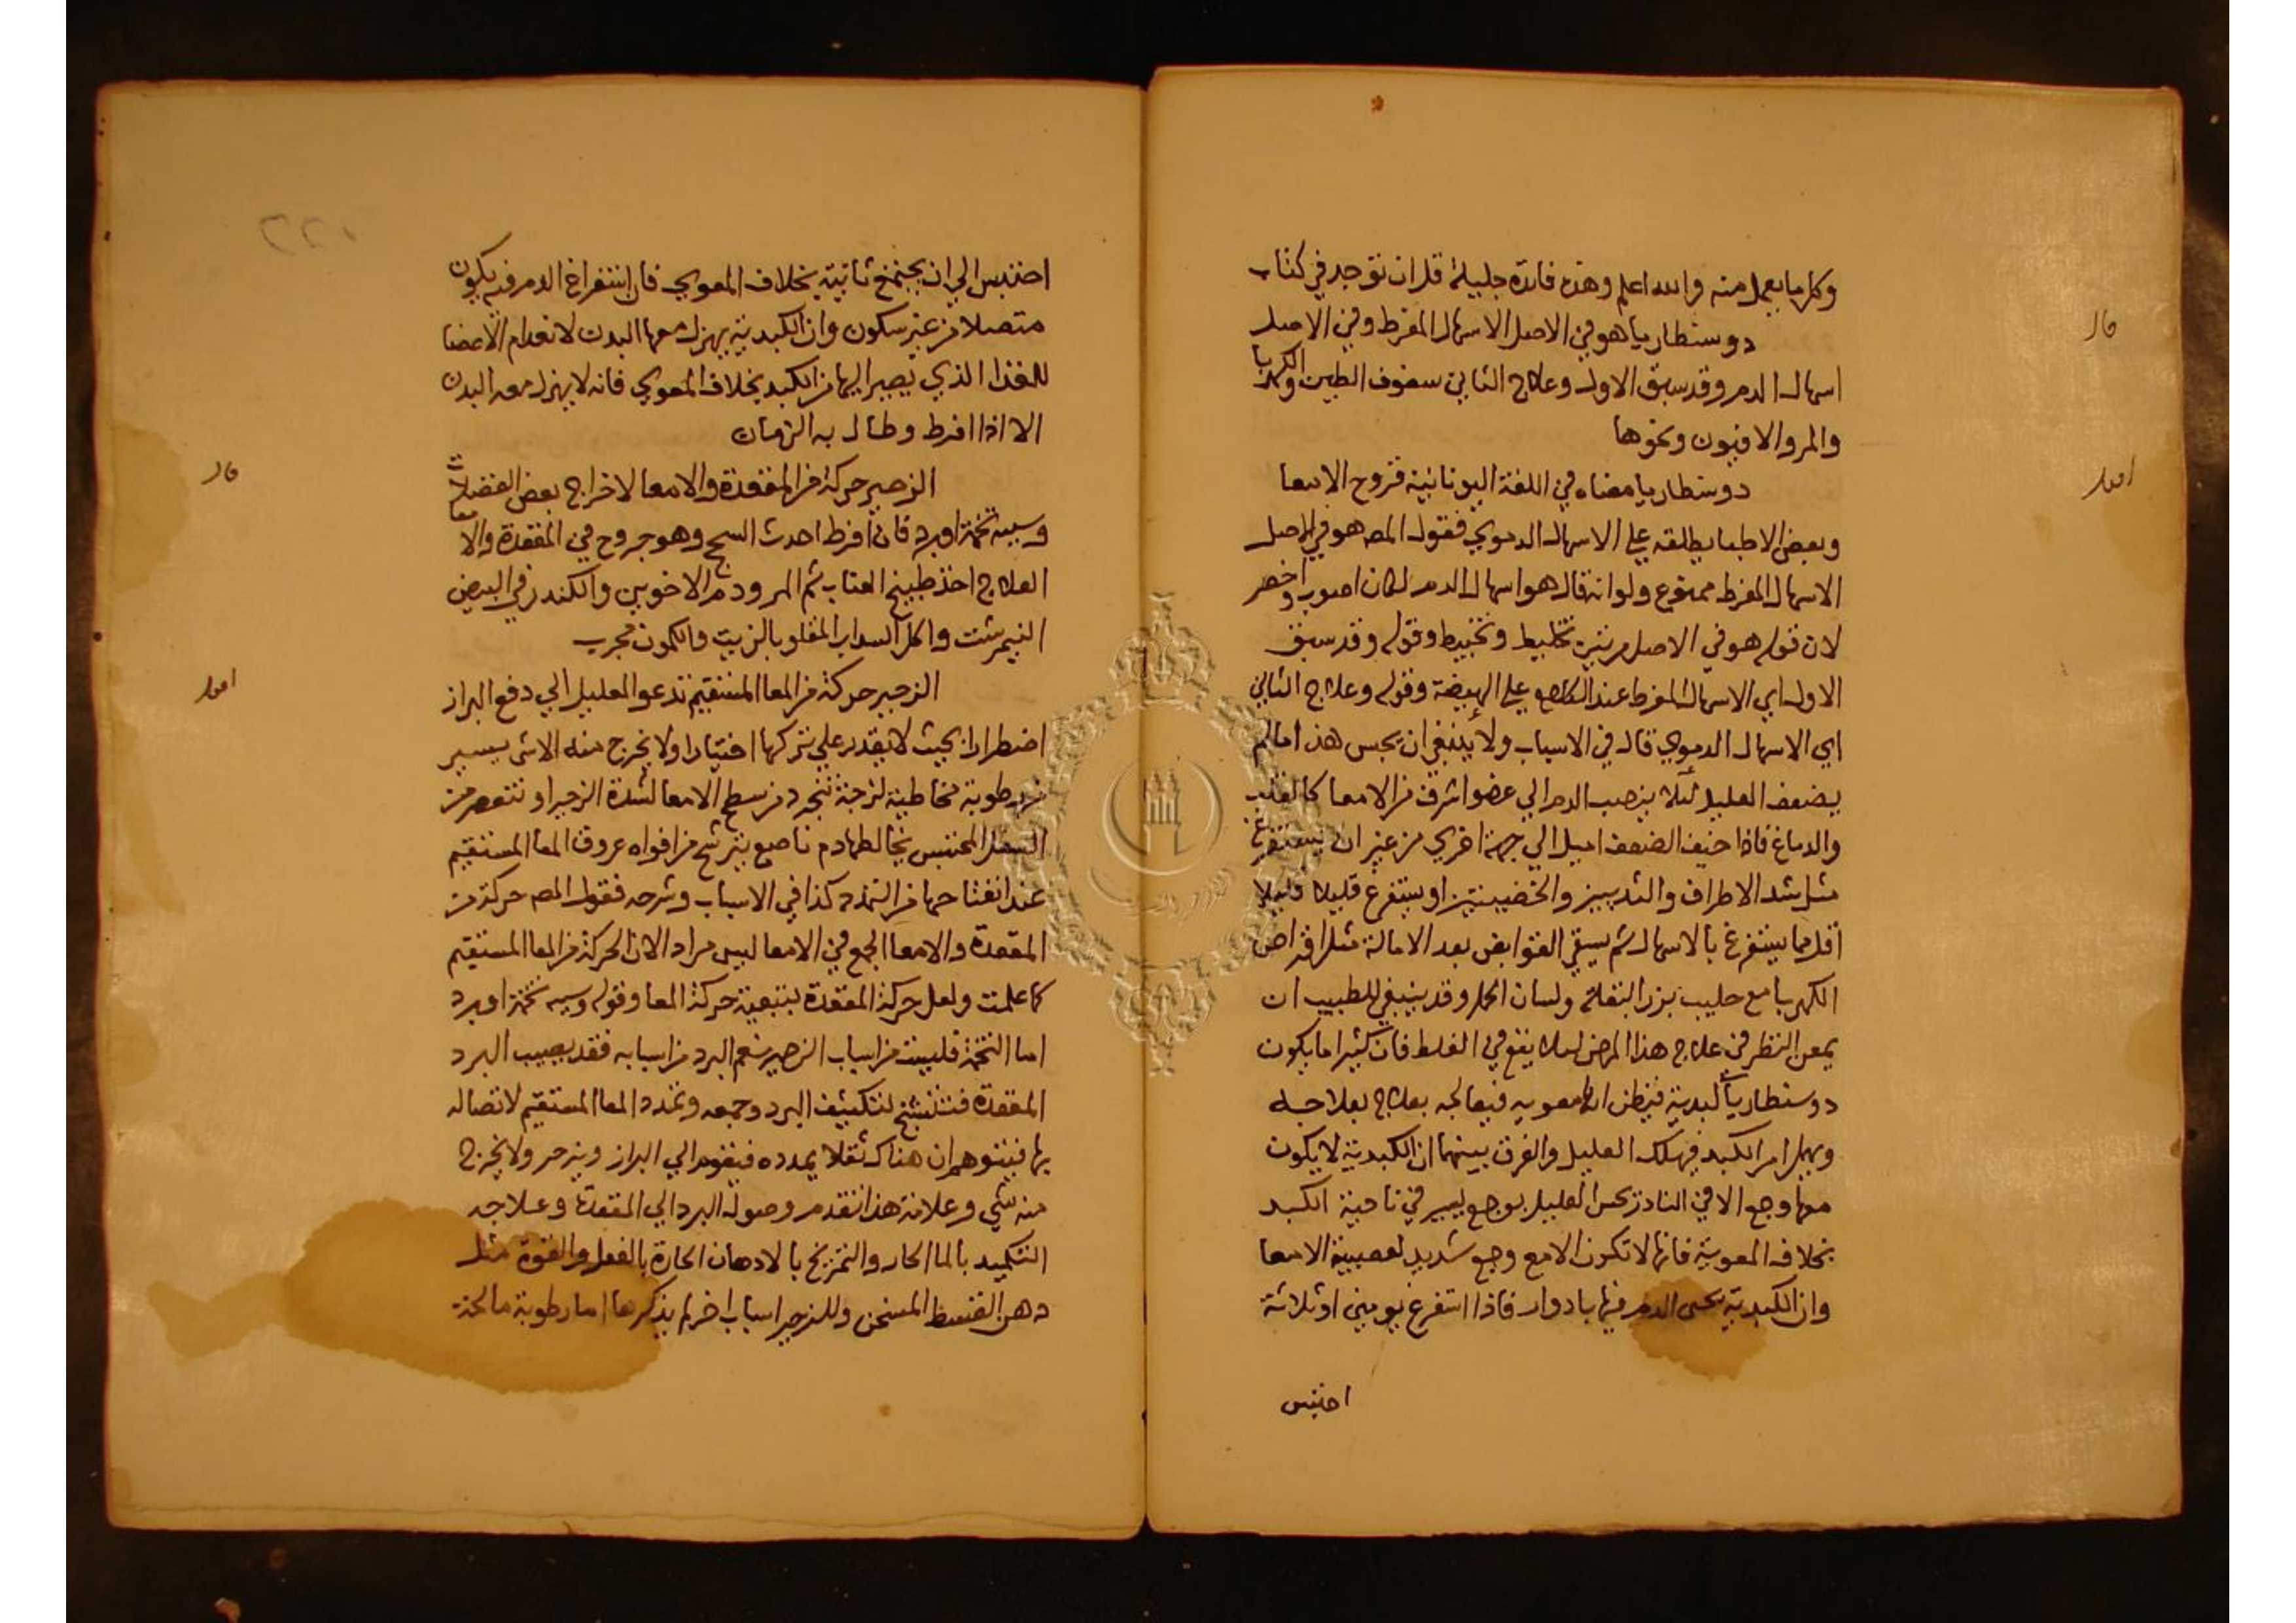 وكل ما يعمل منه والله اعلم وهذه فائدة جليلة قل ان توجد في كتاب
قال
دوسنطاريا هو في الاصل الاسهال المفرط وفي الاصل
اسهال الدم وقد سبق الاول وعلاج الثاني سفوف الطين والكهربا
والمر والافيون ونحوها
اقول
دوسنطاريا معناه في اللغة اليونانية قروح الامعا
وبعض الاطبا يطلقه علي الاسهال الدموي فقول المص هو في الاصل
الاسهال المفرط ممنوع ولو انه قال هو اسهال الدم لكان اصوب واخصر
لان قوله هو في الاصل مرتين تخليط وتخبيط وقوله وقد سبق
الاول اي الاسهال المفرط عند الكلام علي الهيضة وقوله وعلاج الثاني
اي الاسهال الدموي قال في الاسباب ولا ينبغي ان يحبس هذا مالم
يضعف العليل لئلا ينصب الدم الي عضو اشرف من الامعا كالقلب
والدماغ فاذا خيف الضعف اميل الي جهة اخري من غير ان يستفرغ
مثل شد الاطراف والثديين والخصيتين او يستفرغ قليلا قليلا
اقل مما يستفرغ بالاسهال ثم يسقي القوابض بعد الامالة مثل اقراص
الكهربا مع حليب بزر البقلة ولسان الحمل وقد ينبغي للطبيب ان
يمعن النظر في علاج هذا المرض لئلا يقع في الغلط فان كثيرا ما يكون
دوسنطاريا كبدية فيظن انها معويه فيعالجه بعلاج بعلاجه
ويهمل امر الكبد فيهلك العليل والفرق بينهما ان الكبدية لا يكون
معها وجع الا في النادر يحس العليل بوجع يسير في ناحية الكبد
بخلاف المعوية فانها لا تكون الا مع وجع شديد لعصبية الامعا
وان الكبدية يجي الدم فيها بادوار فاذا استفرغ يومين او ثلاثة
احتبس
١٢٢
احتبس الي ان يجتمع ثانية بخلاف المعوي فان استفراغ الدم فيه يكون
متصلا من غير سكون وان الكبدية يهزل معها البدن لانعدام الاعضا
للغذا الذي يصير اليها من الكبد بخلاف المعوي فانه لا يهزل معه البدن
الا اذا افرط وطال به الزمان
قال
الزحير حركة من المقعدة والامعا لاخراج بعض الفضلات
وسببه تخمة او برد فان افرط احدث السحج وهو جروح في المقعدة والامعا
العلاج اخذ طبيخ العناب ثم المر ودم الاخوين والكندر في البيض
النيمرشت واكل السداب المقلو بالزيت والكمون مجرب
اقول
الزحير حركة من المعا المستقيم تدعو العليل الي دفع البراز
اضطرارا بحيث لا يقدر علي تركها اختيارا ولا يخرج منه الا شي يسير
من رطوبة مخاطية لزجة تنجرد من سطح الامعا لشدة الزحير او تنعصر من
الثفل المحتبس يخالطها دم ناصع يترشح من افواه عروق المعا المستقيم
عند انفتاحها من التمدد كذا في الاسباب وشرحه فقول المص حركة من
المقعدة والامعا الجمع في الامعا ليس مراد الان الحركة من المعا المستقيم
كما علمت ولعل حركة المقعدة بتبعية حركة المعا وقوله وسببه تخمة او برد
اما التخمة فليست من اسباب الزحير نعم البرد من اسبابه فقد يصيب البرد
المقعدة فتتشنج لتكييف البرد وجمعه وتمدد المعا المستقيم لاتصاله
بها فيتوهم ان هناك ثقلا يمدده فيقوم الي البراز ويزحر ولا يخرج
منه شي وعلامة هذا تقدم وصول البرد الي المقعدة وعلاجه
التكميد بالما الحار والتمريخ بالادهان الحارة بالفعل والقوة مثل
دهن القسط المسخن وللزحير اسباب اخر لم يذكرها اما رطوبة مالحة